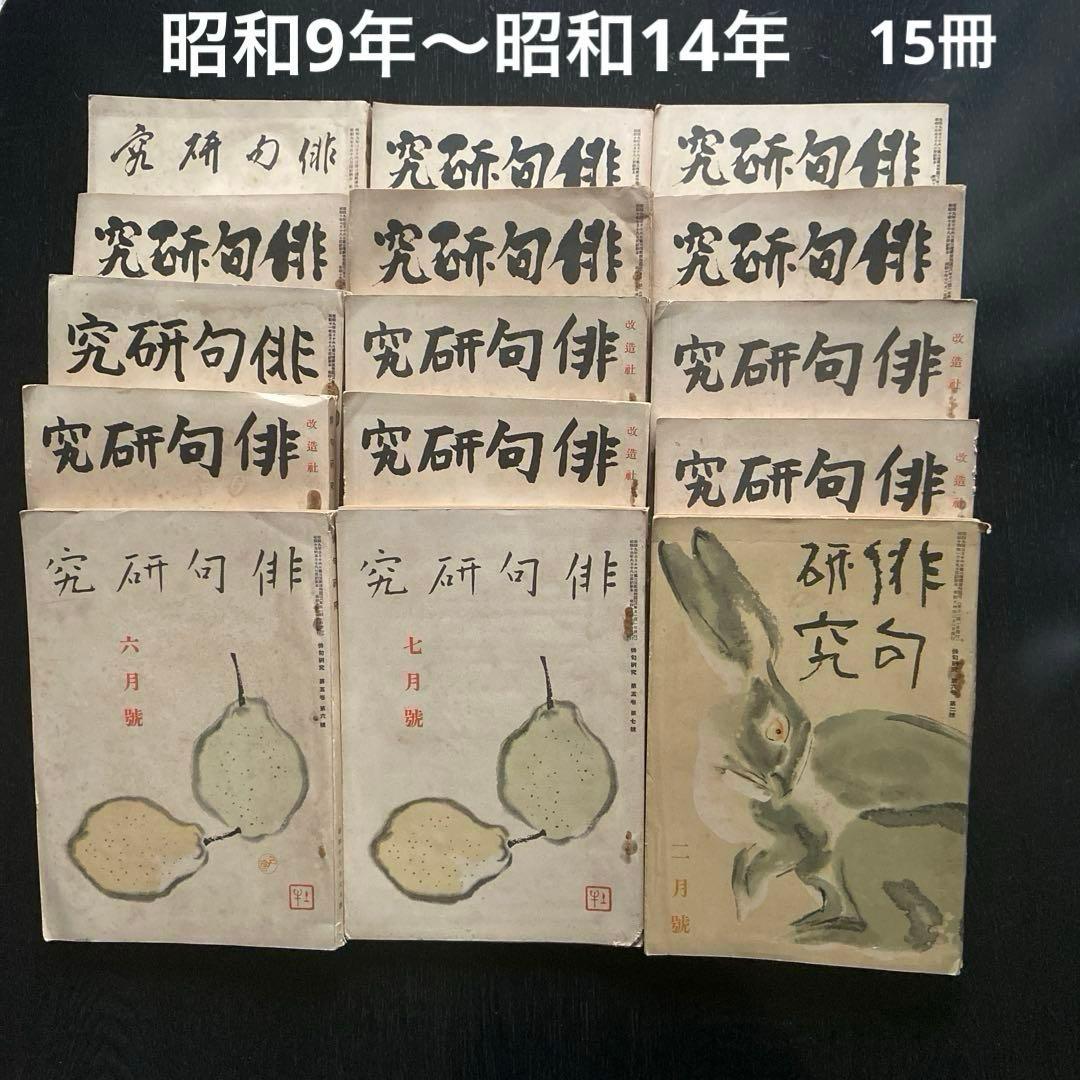 昭和9年〜昭和14年　15冊
俳句研究
俳句研究
俳句研究
俳句研究
俳句研究
俳句研究
俳句研究
俳句研究
改造社
俳句研究
改造社
俳句研究
改造社
俳句研究
改造社
俳句研究
改造社
俳句研究
六月號
俳句研究 第五卷 第六號
俳句研究
七月號
俳句研究 第五卷 第七號
俳句
研究
二月號
俳句研究 第六卷 第二號